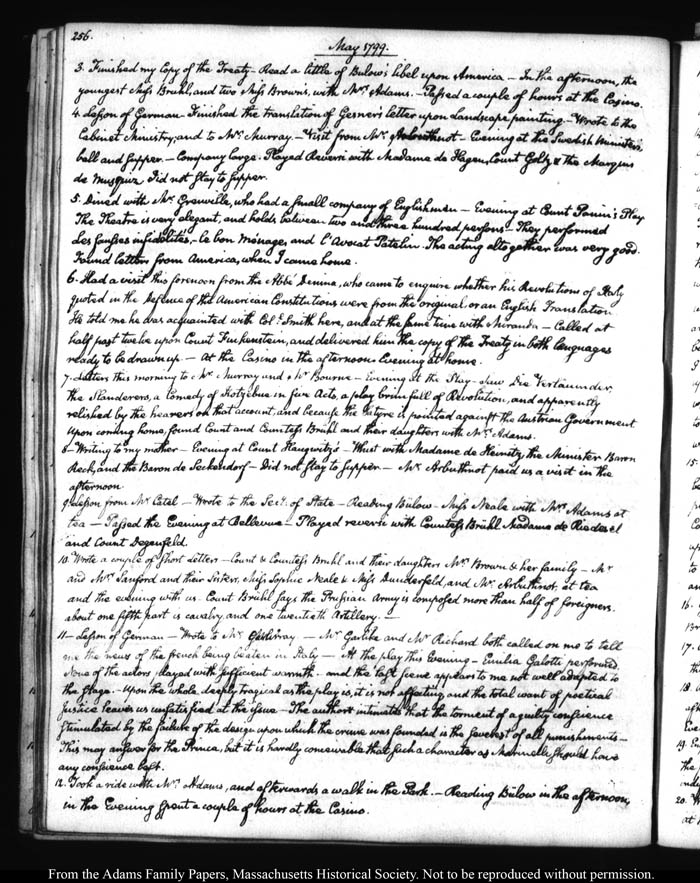 256.
May 1799.
3. Finished my Copy of the Treaty – Read a little of Bulow's libel upon America – In the afternoon, the
youngest Miss Bruhl, and two Miss Browns, with Mrs. Adams. – Passed a couple of hours at the Casino.
4. Lesson of German – Finished the translation of Gesner's letter upon Landscape painting – Wrote to the
Cabinet Ministry; and to Mr. Murray – Visit from Mr. Arbuthnot – Evening at the Swedish Ministers
ball and supper. – Company large. Played Reversi with Madame de Hagen, Count Goltz & the Marquis
de Musquiz. Did not stay to supper.
5. Dined with Mr. Grenville, who had a small company of Englishmen – Evening at Count Panin's Play
The Theatre is very elegant, and holds between two and three hundred persons – They performed
Les fausses infidelités, – Le bon Menage, and l'Avocat Patelin. The acting altogether was very good.
Found letters from America, when I came home.
6. Had a visit this forenoon from the Abbé Denina, who came to enquire whether his Revolutions of Italy
quoted in the Defence of the American Constitutions were from the original or an English Translation.
He told me he was acquainted with Coll. Smith here, and at the same time with Miranda – Called at
half past twelve upon Count Finkenstein, and delivered him the copy of the Treaty in both languages
ready to be drawn up – At the Casino in the afternoon. Evening at home.
7. Letters this morning to Mr. Murray and Mr. Bourne – Evening at the Play – Saw Die Verläumder,
the Slanderers, a Comedy of Kotzebue in five Acts, a play brimfull of Revolution, and apparently
relished by the hearers on that account, and because the satyre is pointed against the Austrian Government
Upon coming home, found Count and Countess Brühl and their daughters with Mrs. Adams.
8 – Writing to my mother – Evening at Count Haugwitz's – Whist with Madame de Heinitz, the Minister Baron
Reck, and the Baron de Seckendorf – Did not stay to supper – Mr. Arbuthnot paid us a visit in the
afternoon
9. Lesson from Mr. Catel – Wrote to the Secy. of State – Reading Bülow – Miss Neale with Mrs. Adams at
tea – Passed the Evening at Bellevue – Played reversi with Countess Brühl Madame de Riedesel
and Count Degenfeld.
10. Wrote a couple of short letters – Count & Countess Bruhl and their daughters Mrs. Brown & her family – Mr
and Mrs. Sanford and their sister, Miss Sophie Neale & Miss Dunderfeld, and Mr. Arbuthnot, at tea
and the evening with us. Count Brühl says the Prussian Army is composed more than half of foreigners.
about one fifth part is cavalry and one twentieth Artillery. –
11 – Lesson of German – Wrote to Mr. Murray – Mr. Garlike and Mr. Richard both called on me to tell
me the news of the french being beaten in Italy – At the play this Evening – Emilia Galotti performed.
None of the actors played with sufficient warmth. and the last scene appears to me not well adapted to
the stage. Upon the whole, deeply tragical as the play is, it is not affecting, and the total want of poetical
justice leaves us unsatisfied at the issue – The author intimates that the torment of a guilty conscience
stimulated by the failure of the design upon which the crime was founded is the severest of all punishments –
This may answer for the Prince, but it is hardly conceivable that such a character as Marinelli should have
any conscience left.
12. Took a ride with Mrs. Adams, and afterwards a walk in the Park. – Reading Bülow in the afternoon,
in the Evening spent a couple of hours at the Casino.
From the Adams Family Papers, Massachusetts Historical Society. Not to be reproduced without permission.